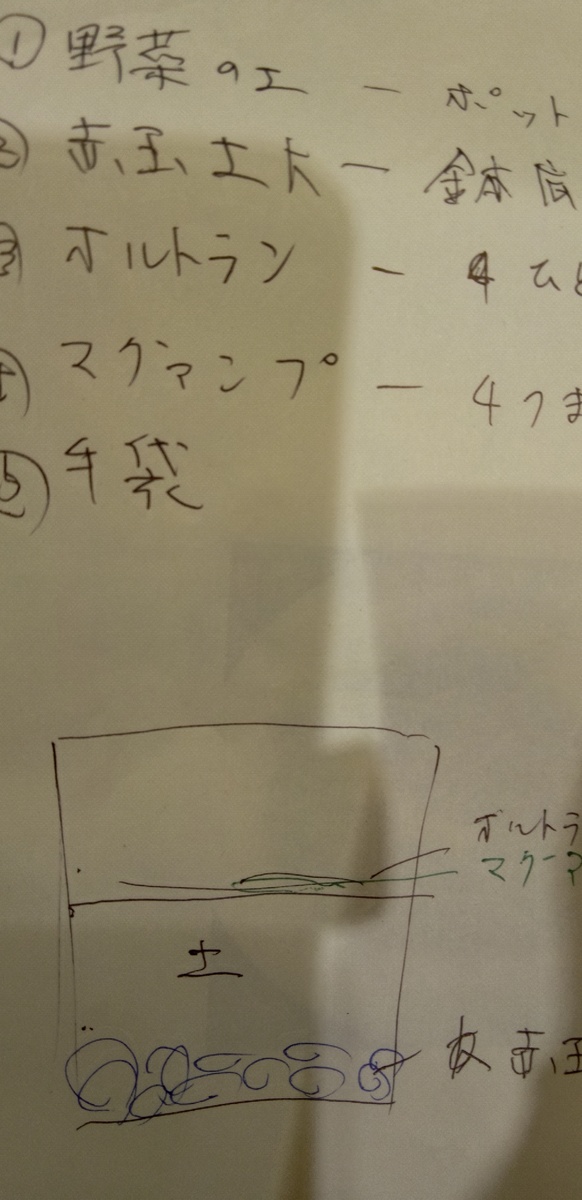 ① 野菜の土 ー ポット
② 赤玉土大 ー 鉢底
③ オルトラン ー 4 ひと
④ マグァンプ ー 4つま
⑤ 手袋
オルトラ
マグーマ
土
赤玉